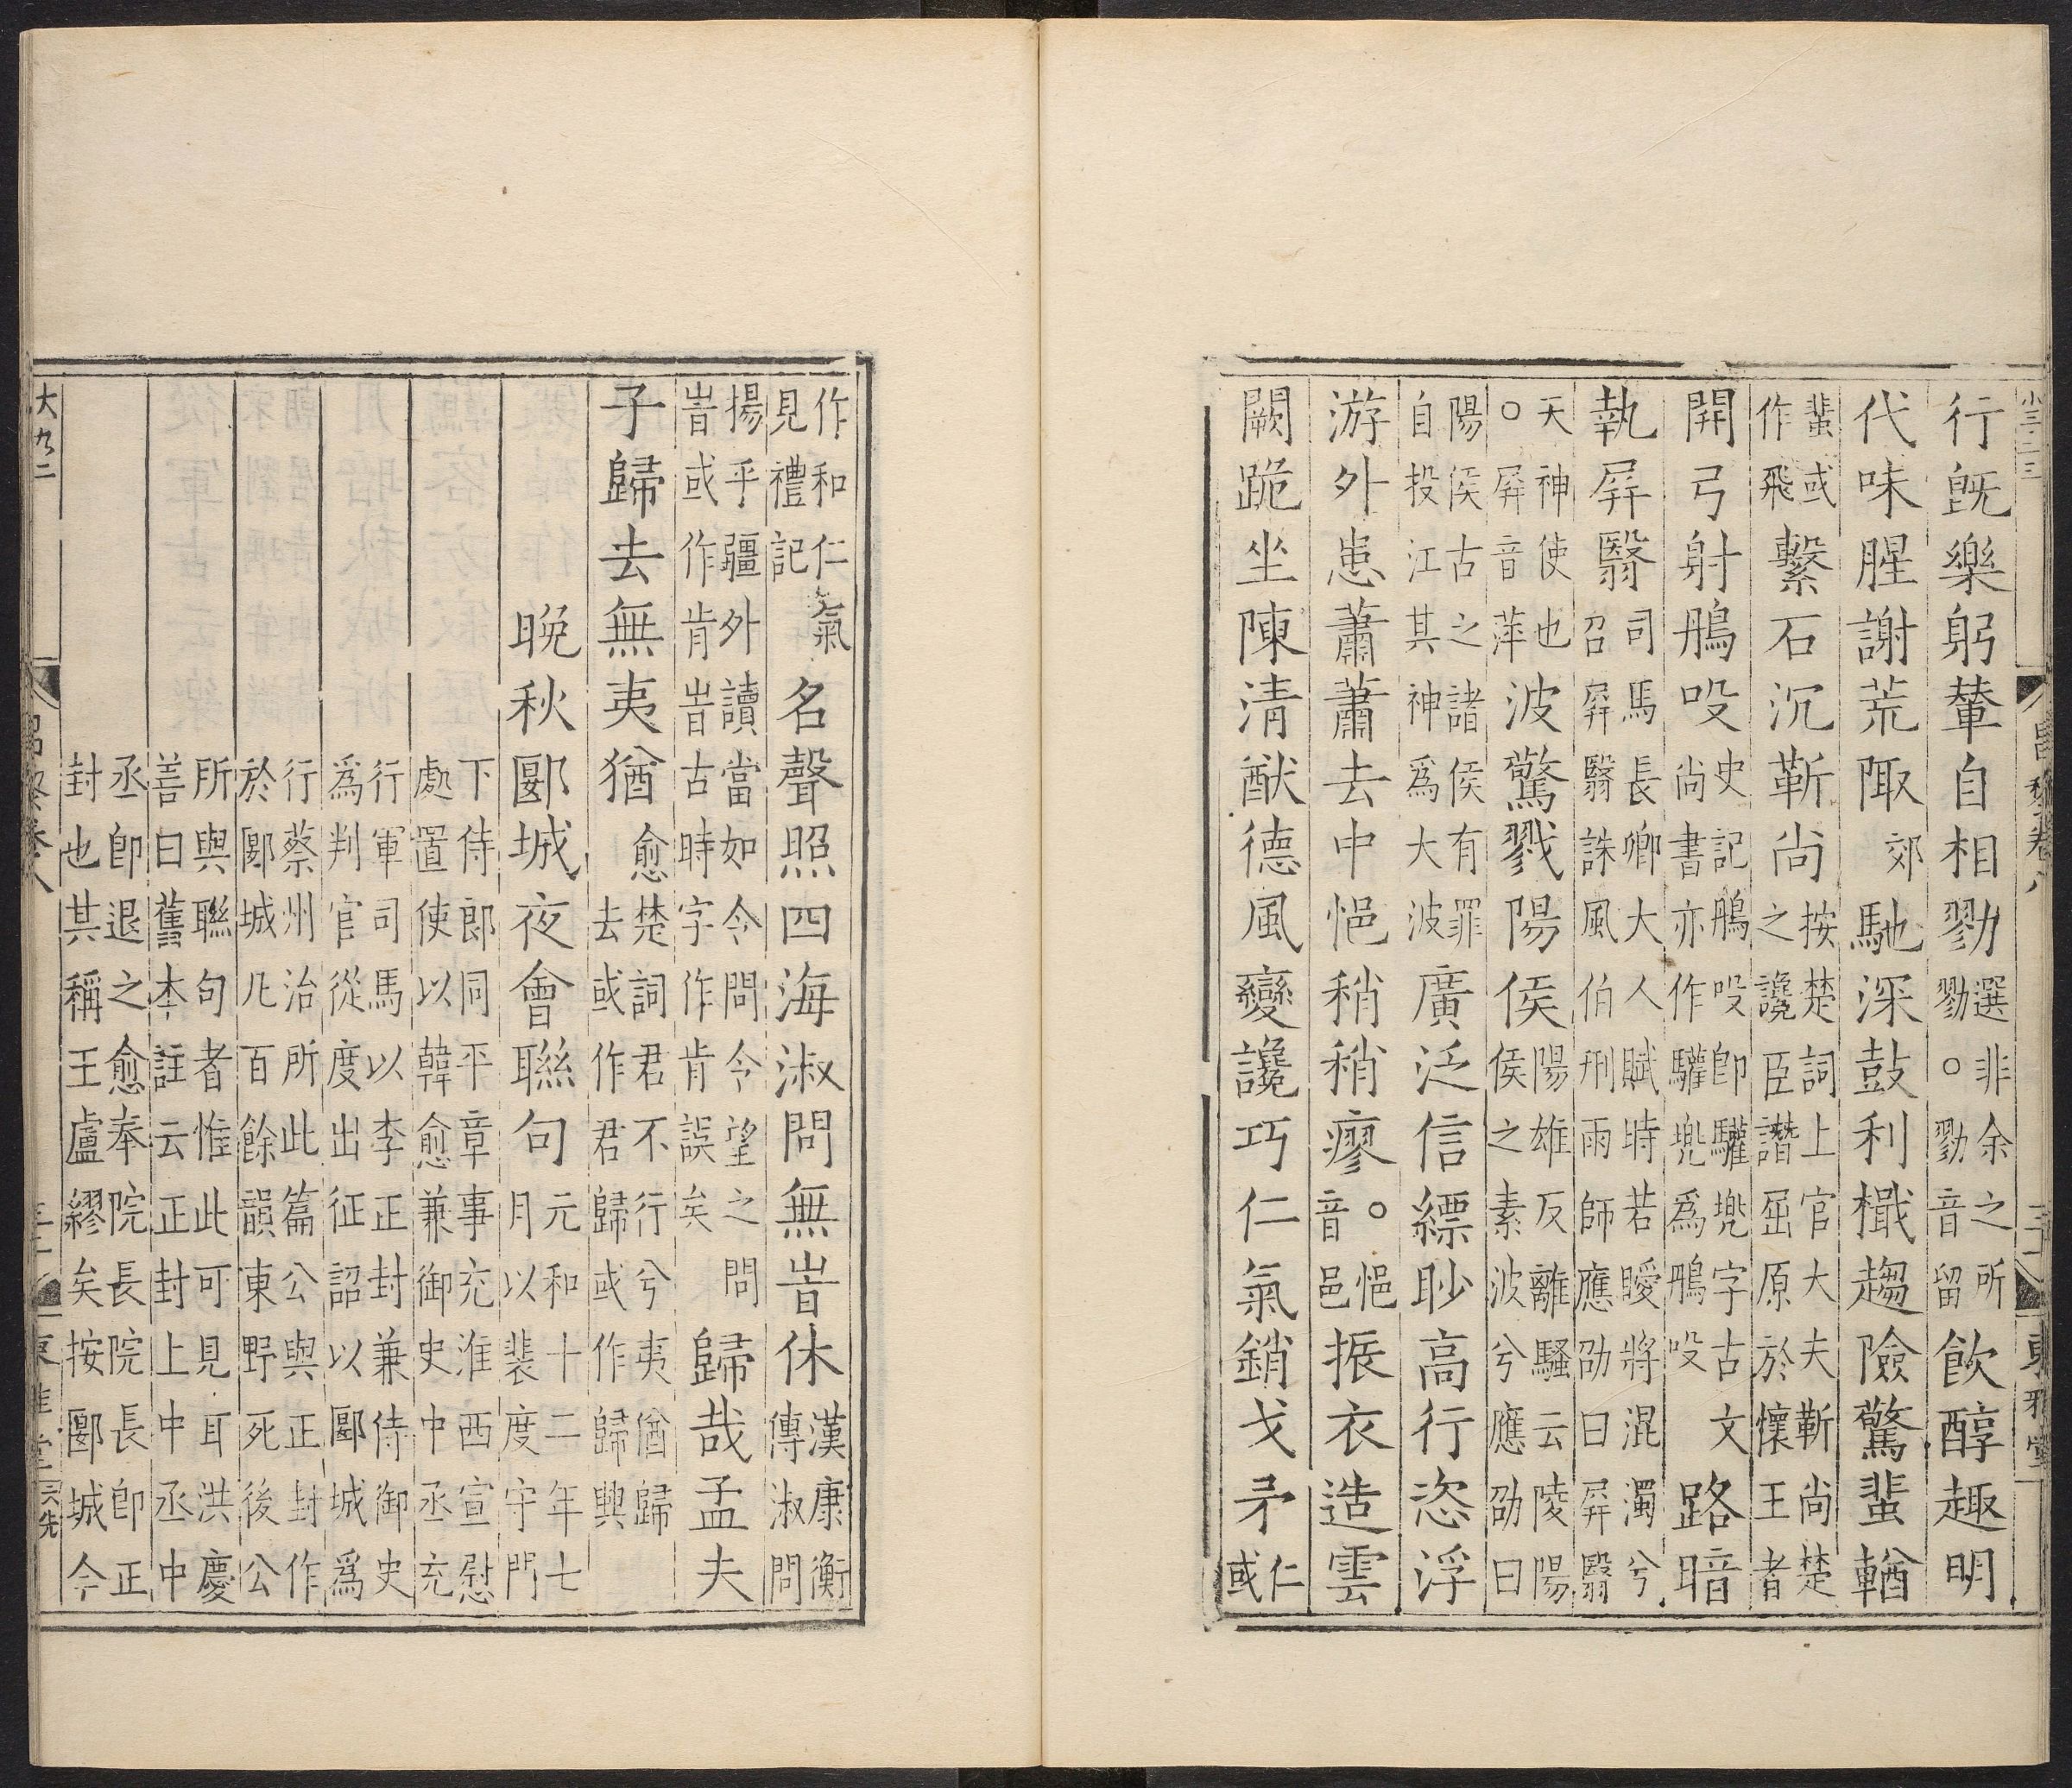 行旣樂躬輦自相勠選非余之所勠。勠音留飲醇趣明
代味腥謝荒陬郊馳深鼓利檝趨險驚蜚輶
蜚或作飛繫石沉靳尚按楚詞上官大夫靳尚楚之讒臣譖屈原於懷王者
開弓射鴅吺史記鴅吺卽驩兜字古文尚書亦作驩兜爲鴅吺路暗
執屛翳司馬長卿大人賦時若曖將混濁兮召屛翳誅風伯刑雨師應劭曰屛翳
天神使也。屛音萍波驚戮陽侯陽雄反離騷云陵陽侯之素波兮應劭曰
陽侯古之諸侯有罪自投江其神爲大波廣泛信縹眇高行恣浮
游外患蕭蕭去中悒稍稍瘳。悒音邑振衣造雲
闕跪坐陳淸猷德風變讒巧仁氣銷戈矛仁或
作和仁氣見禮記名聲照四海淑問無旹休漢康衡傳淑問
揚乎疆外讀當如令問令望之問旹或作肯旹古時字作肯誤矣歸哉孟夫
子歸去無夷猶愈楚詞君不行兮夷猶歸去或作君歸或作歸興
晚秋郾城夜會聯句元和十二年七月以裴度守門
下侍郎同平章事充淮西宣慰處置使以韓愈兼御史中丞充
行軍司馬以李正封兼侍御史爲判官從度出征詔以郾城爲
行蔡州治所此篇公與正封作於郾城凡百餘韻東野死後公
所與聯句者惟此可見耳洪慶善曰舊本註云正封上中丞中
丞卽退之愈奉院長院長卽正封也其稱王盧繆矣按郾城今